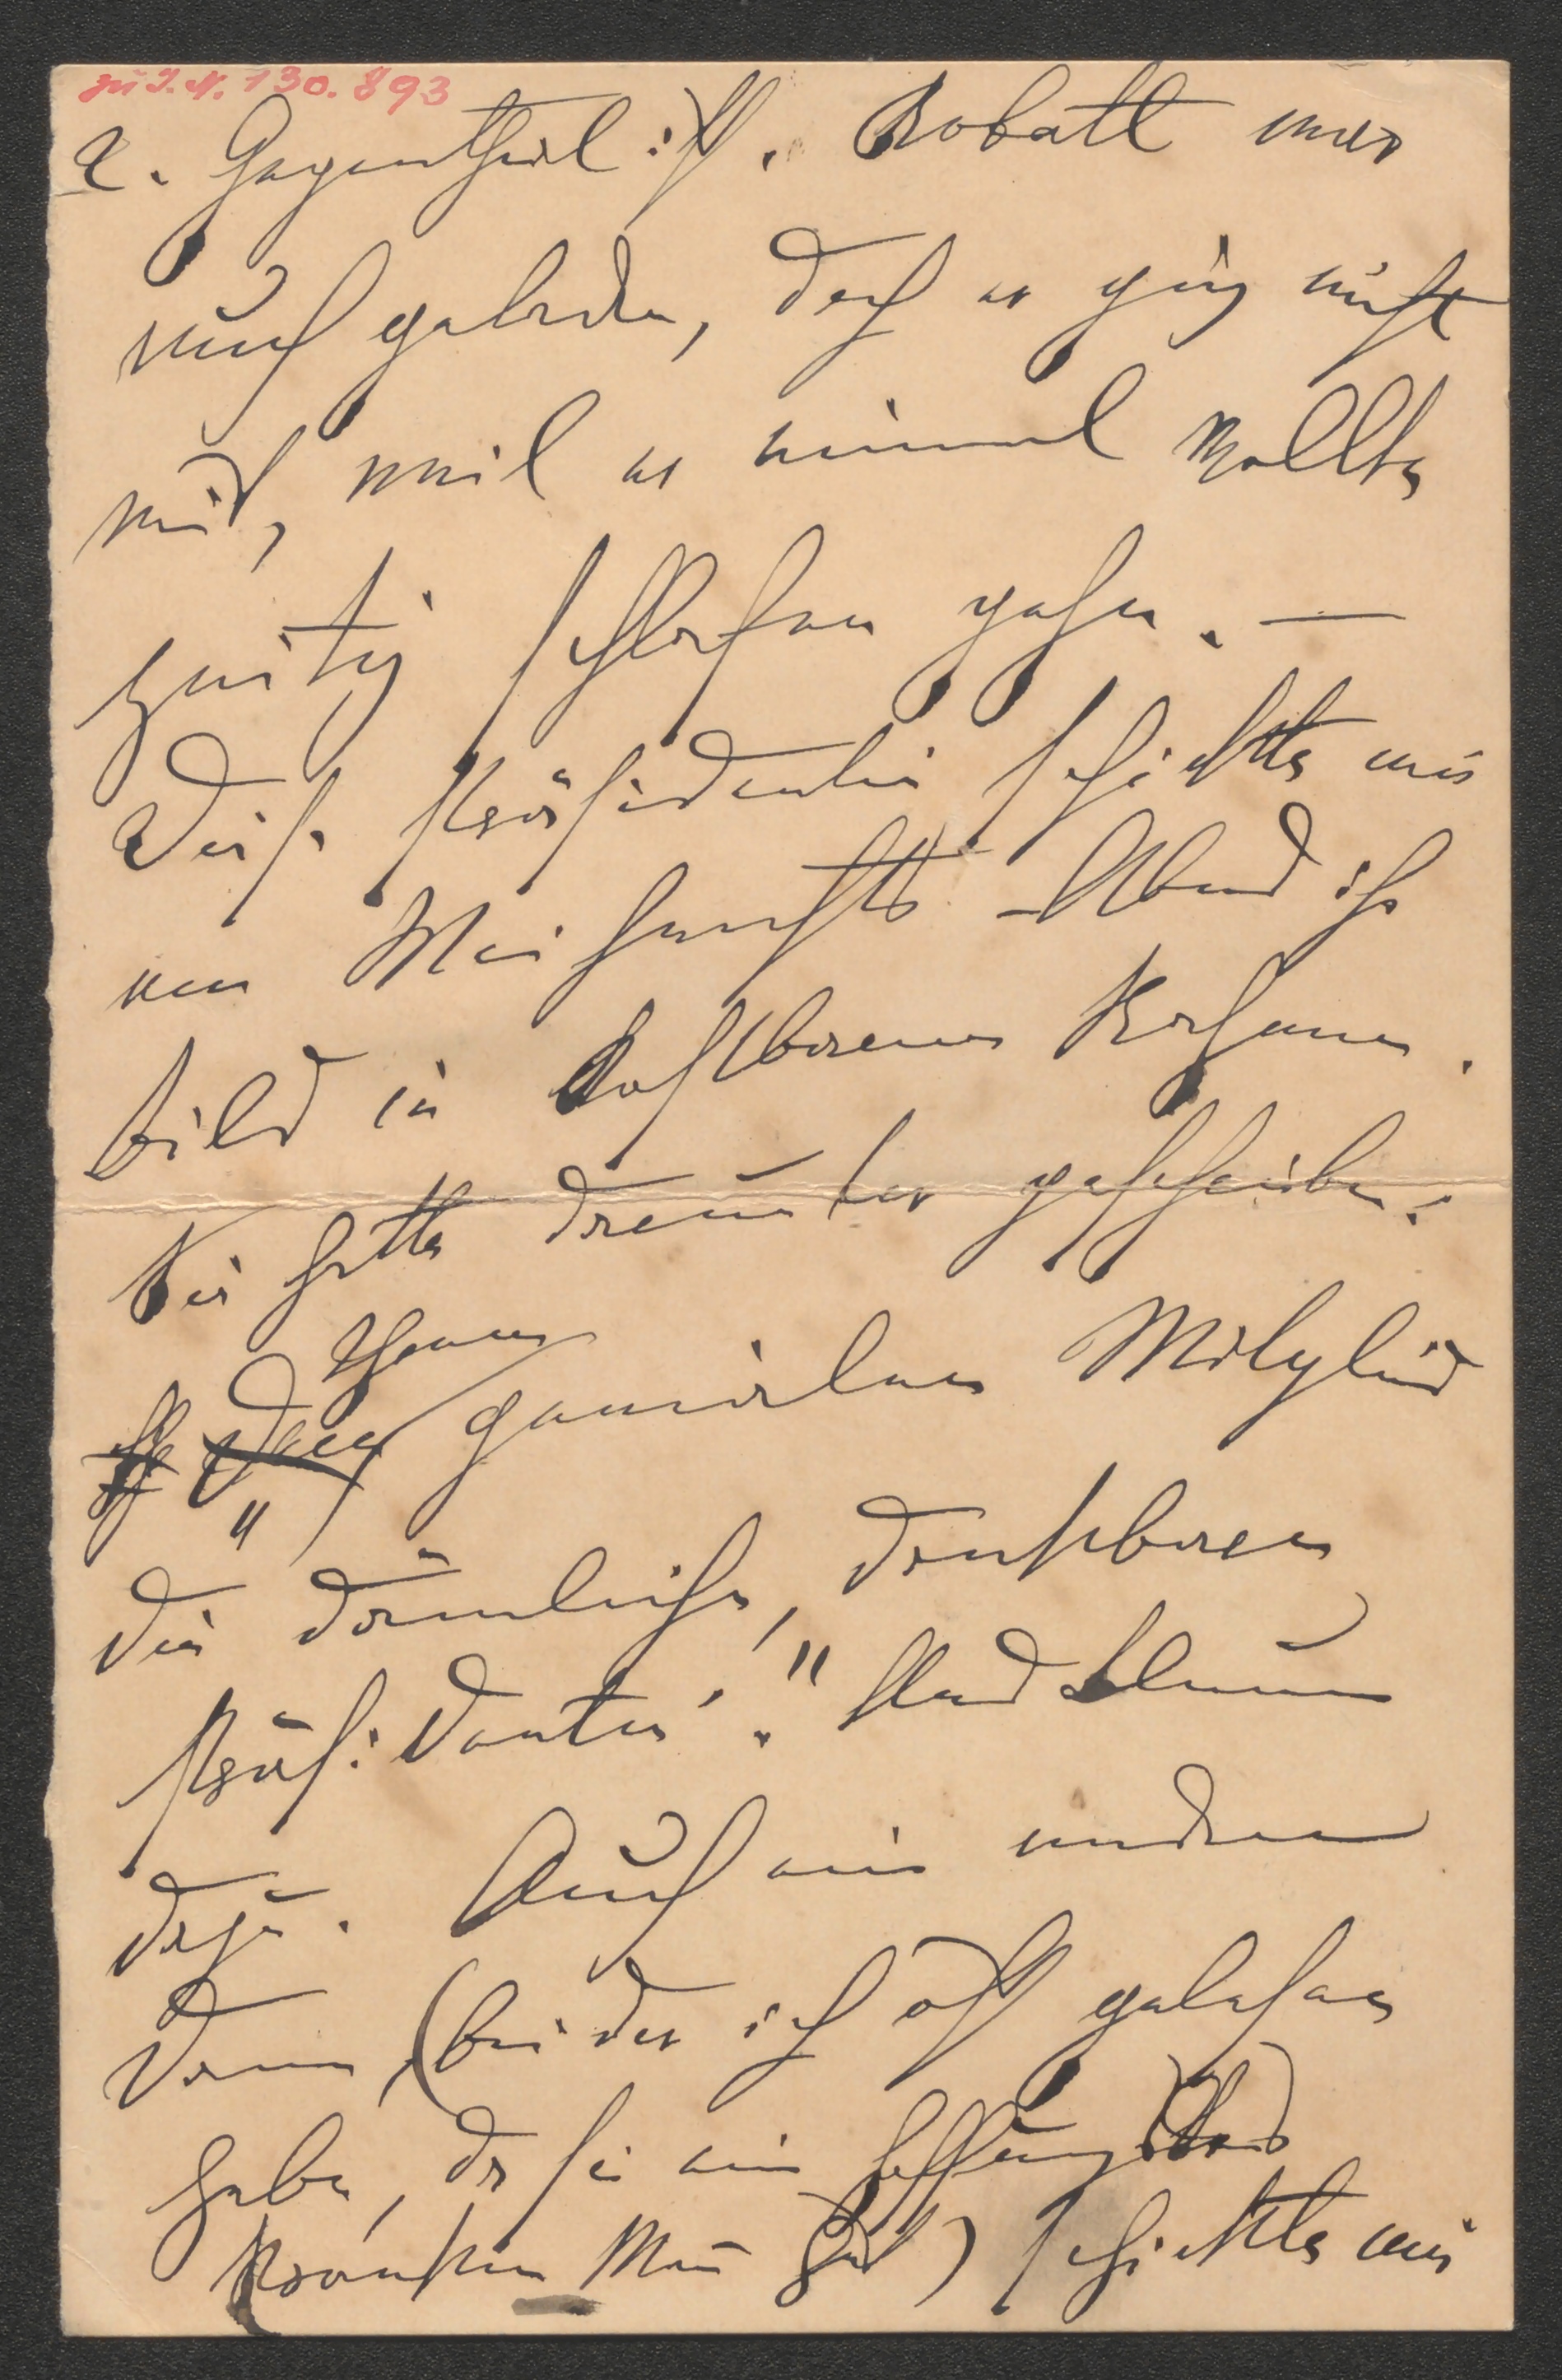 zu I.N. 130.893
2. Gegentheil ist. Robert war
auch geladen, doch er ging nicht
mit, weil er einmal wollte
zeitig schlafen gehen. —
Diese Präsidentin schickte mir
am Weihnachts-Abend ihr
Bild in kostbarem Rahmen.
Sie hatte darunter geschrieben:
Ihrem
genialen Mitglied
die dämliche, dankbare
Präsidentin." stand
dazu. Auch eine andere
Dame, (bei der ich oft gelesen
habe, da sie ein hoffnungslos
kranken Mann hat) schickte mir